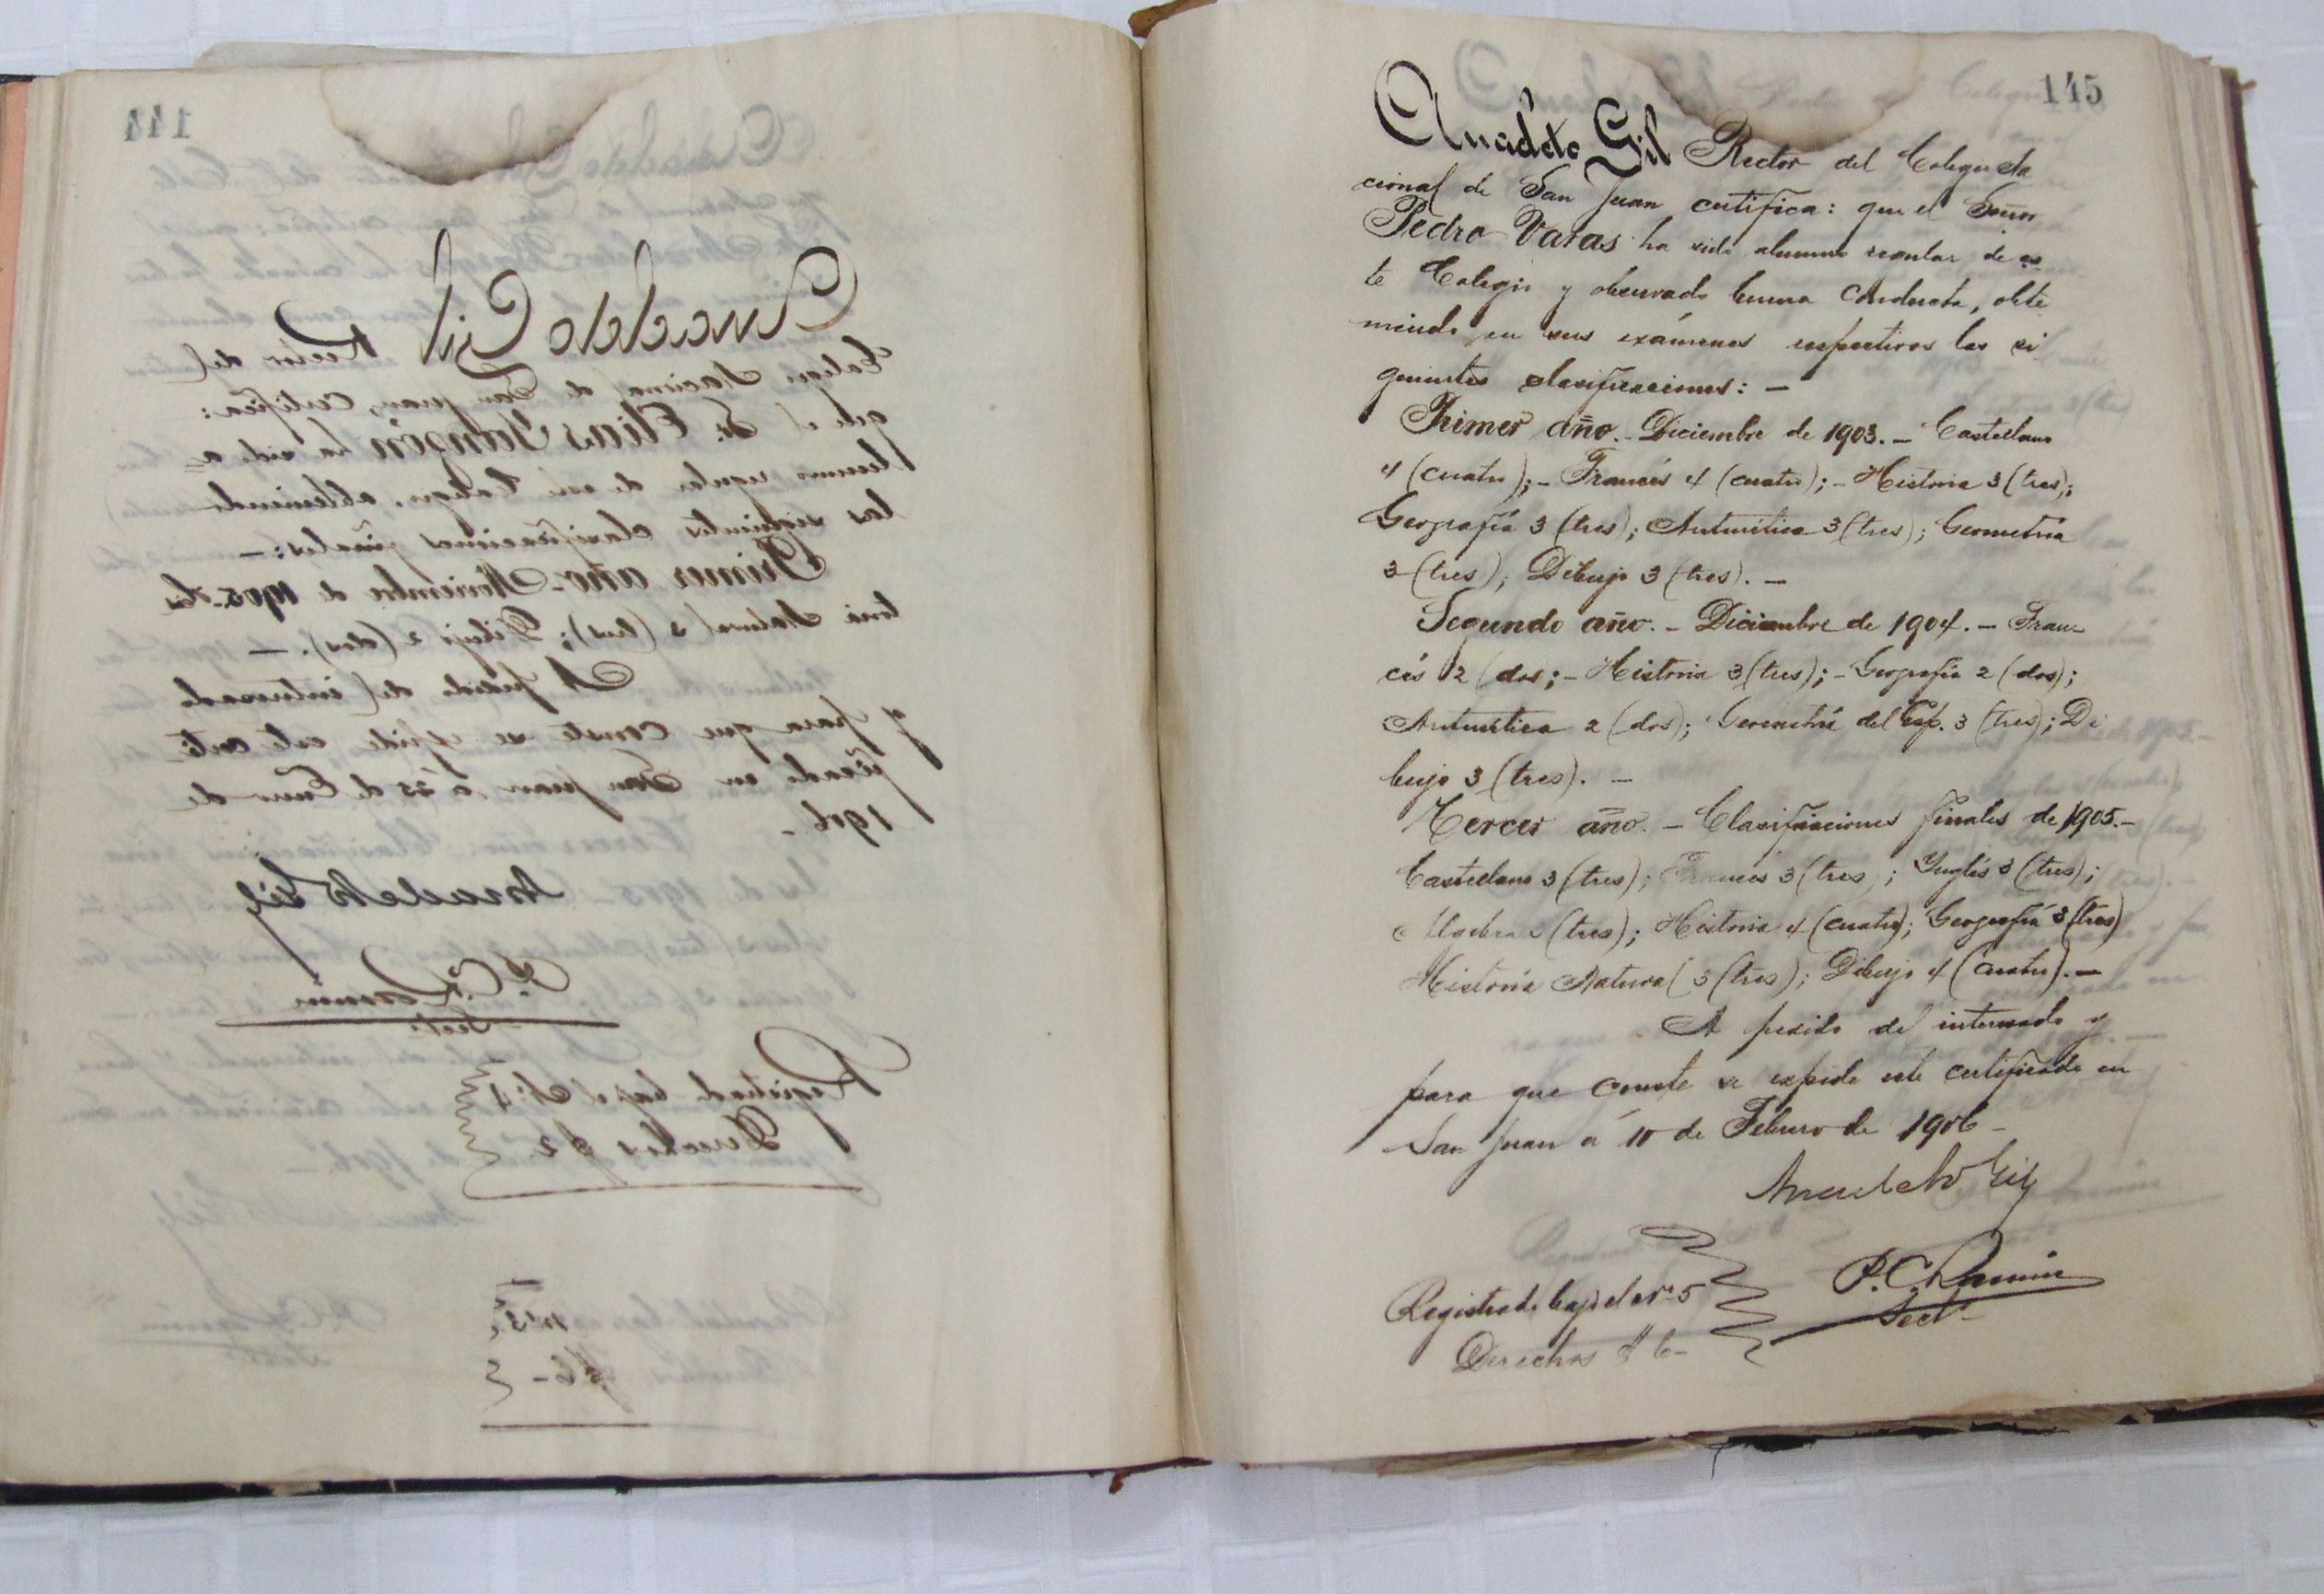 144
Anacleto Gil Rector del
Colegio Nacional de San Juan, Certifica:
que el Sr. Elias Yanzón ha sido a=
lumno regular de este Colegio, obteniendo
las siguientes clasificaciones finales: —
Primer año - Noviembre de 1905. His
toria Natural 3 (tres); Dibujo 2 (dos). —
A pedido del interesado
y para que conste se expide este certi-
ficado en San Juan, á 25 de Enero de
1906 -
Anacleto Gil
P. C.
Secr.
Registrado bajo el Nº 4
Derechos $ 2.
145
Anacleto Gil Rector del Colegio Na
cional de San Juan certifica: que el Señor
Pedro Varas ha sido alumno regular de es
te Colegio y observado buena conducta, obte
niendo en sus exámenes respectivos las si
guientes clasificaciones: —
Primer año. - Diciembre de 1903. — Castellano
4 (cuatro); - Francés 4 (cuatro); - Historia 3 (tres);
Geografía 3 (tres); Aritmética 3 (tres); Geometría
3 (tres); Dibujo 3 (tres). —
Segundo año. - Diciembre de 1904. — Fran
cés 2 (dos; - Historia 3 (tres); - Geografía 2 (dos);
Aritmética 2 (dos); Geometría del Esp. 3 (tres); Di
bujo 3 (tres). —
Tercer año. — Clasificaciones finales de 1905. —
Castellano 3 (tres); Francés 3 (tres ; Inglés 3 (tres);
Algebra 3 (tres); Historia 4 (cuatro); Geografía 3 (tres)
Historia Natural 3 (tres); Dibujo 4 (cuatro). —
A pedido del interesado y
para que conste se expide este certificado en
San Juan á 10 de Febrero de 1906 —
Anacleto Gil
P. C.
Secr.
Registrado bajo el nº 5
Derechos $ 6 —